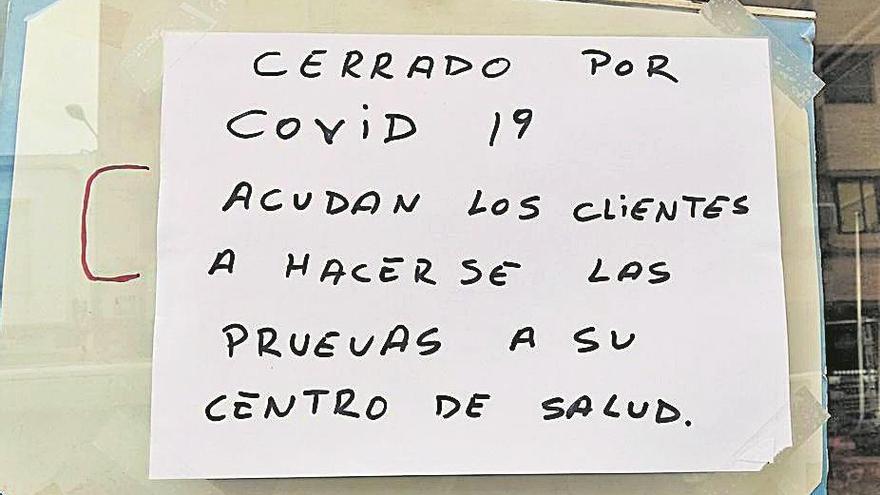 CERRADO POR
COViD 19
ACUDAN LOS CLiENTES
A HACERSE LAS
PRUEVAS A SU
CENTRO DE SALUD.